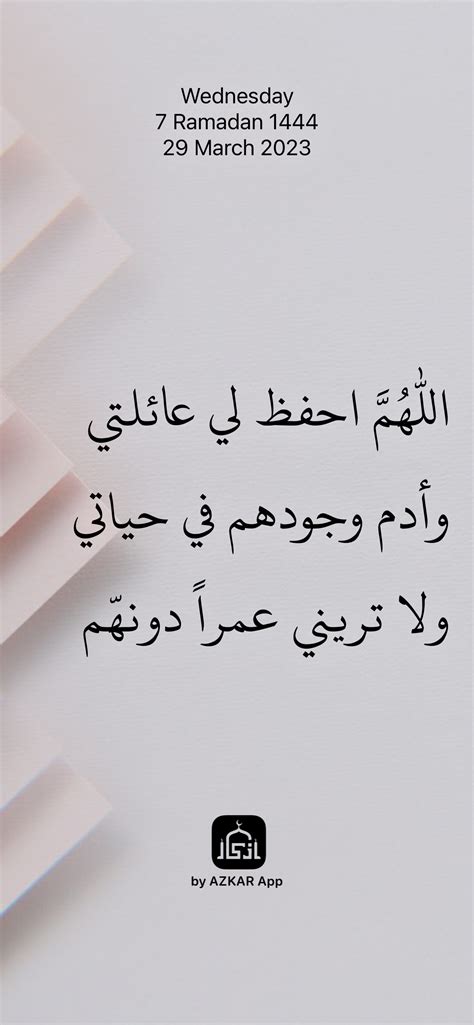 Wednesday
7 Ramadan 1444
29 March 2023
اللّٰهُمَّ احفظ لي عائلتي
وأدم وجودهم في حياتي
ولا تريني عمراً دونهّم
أذكار
by AZKAR App